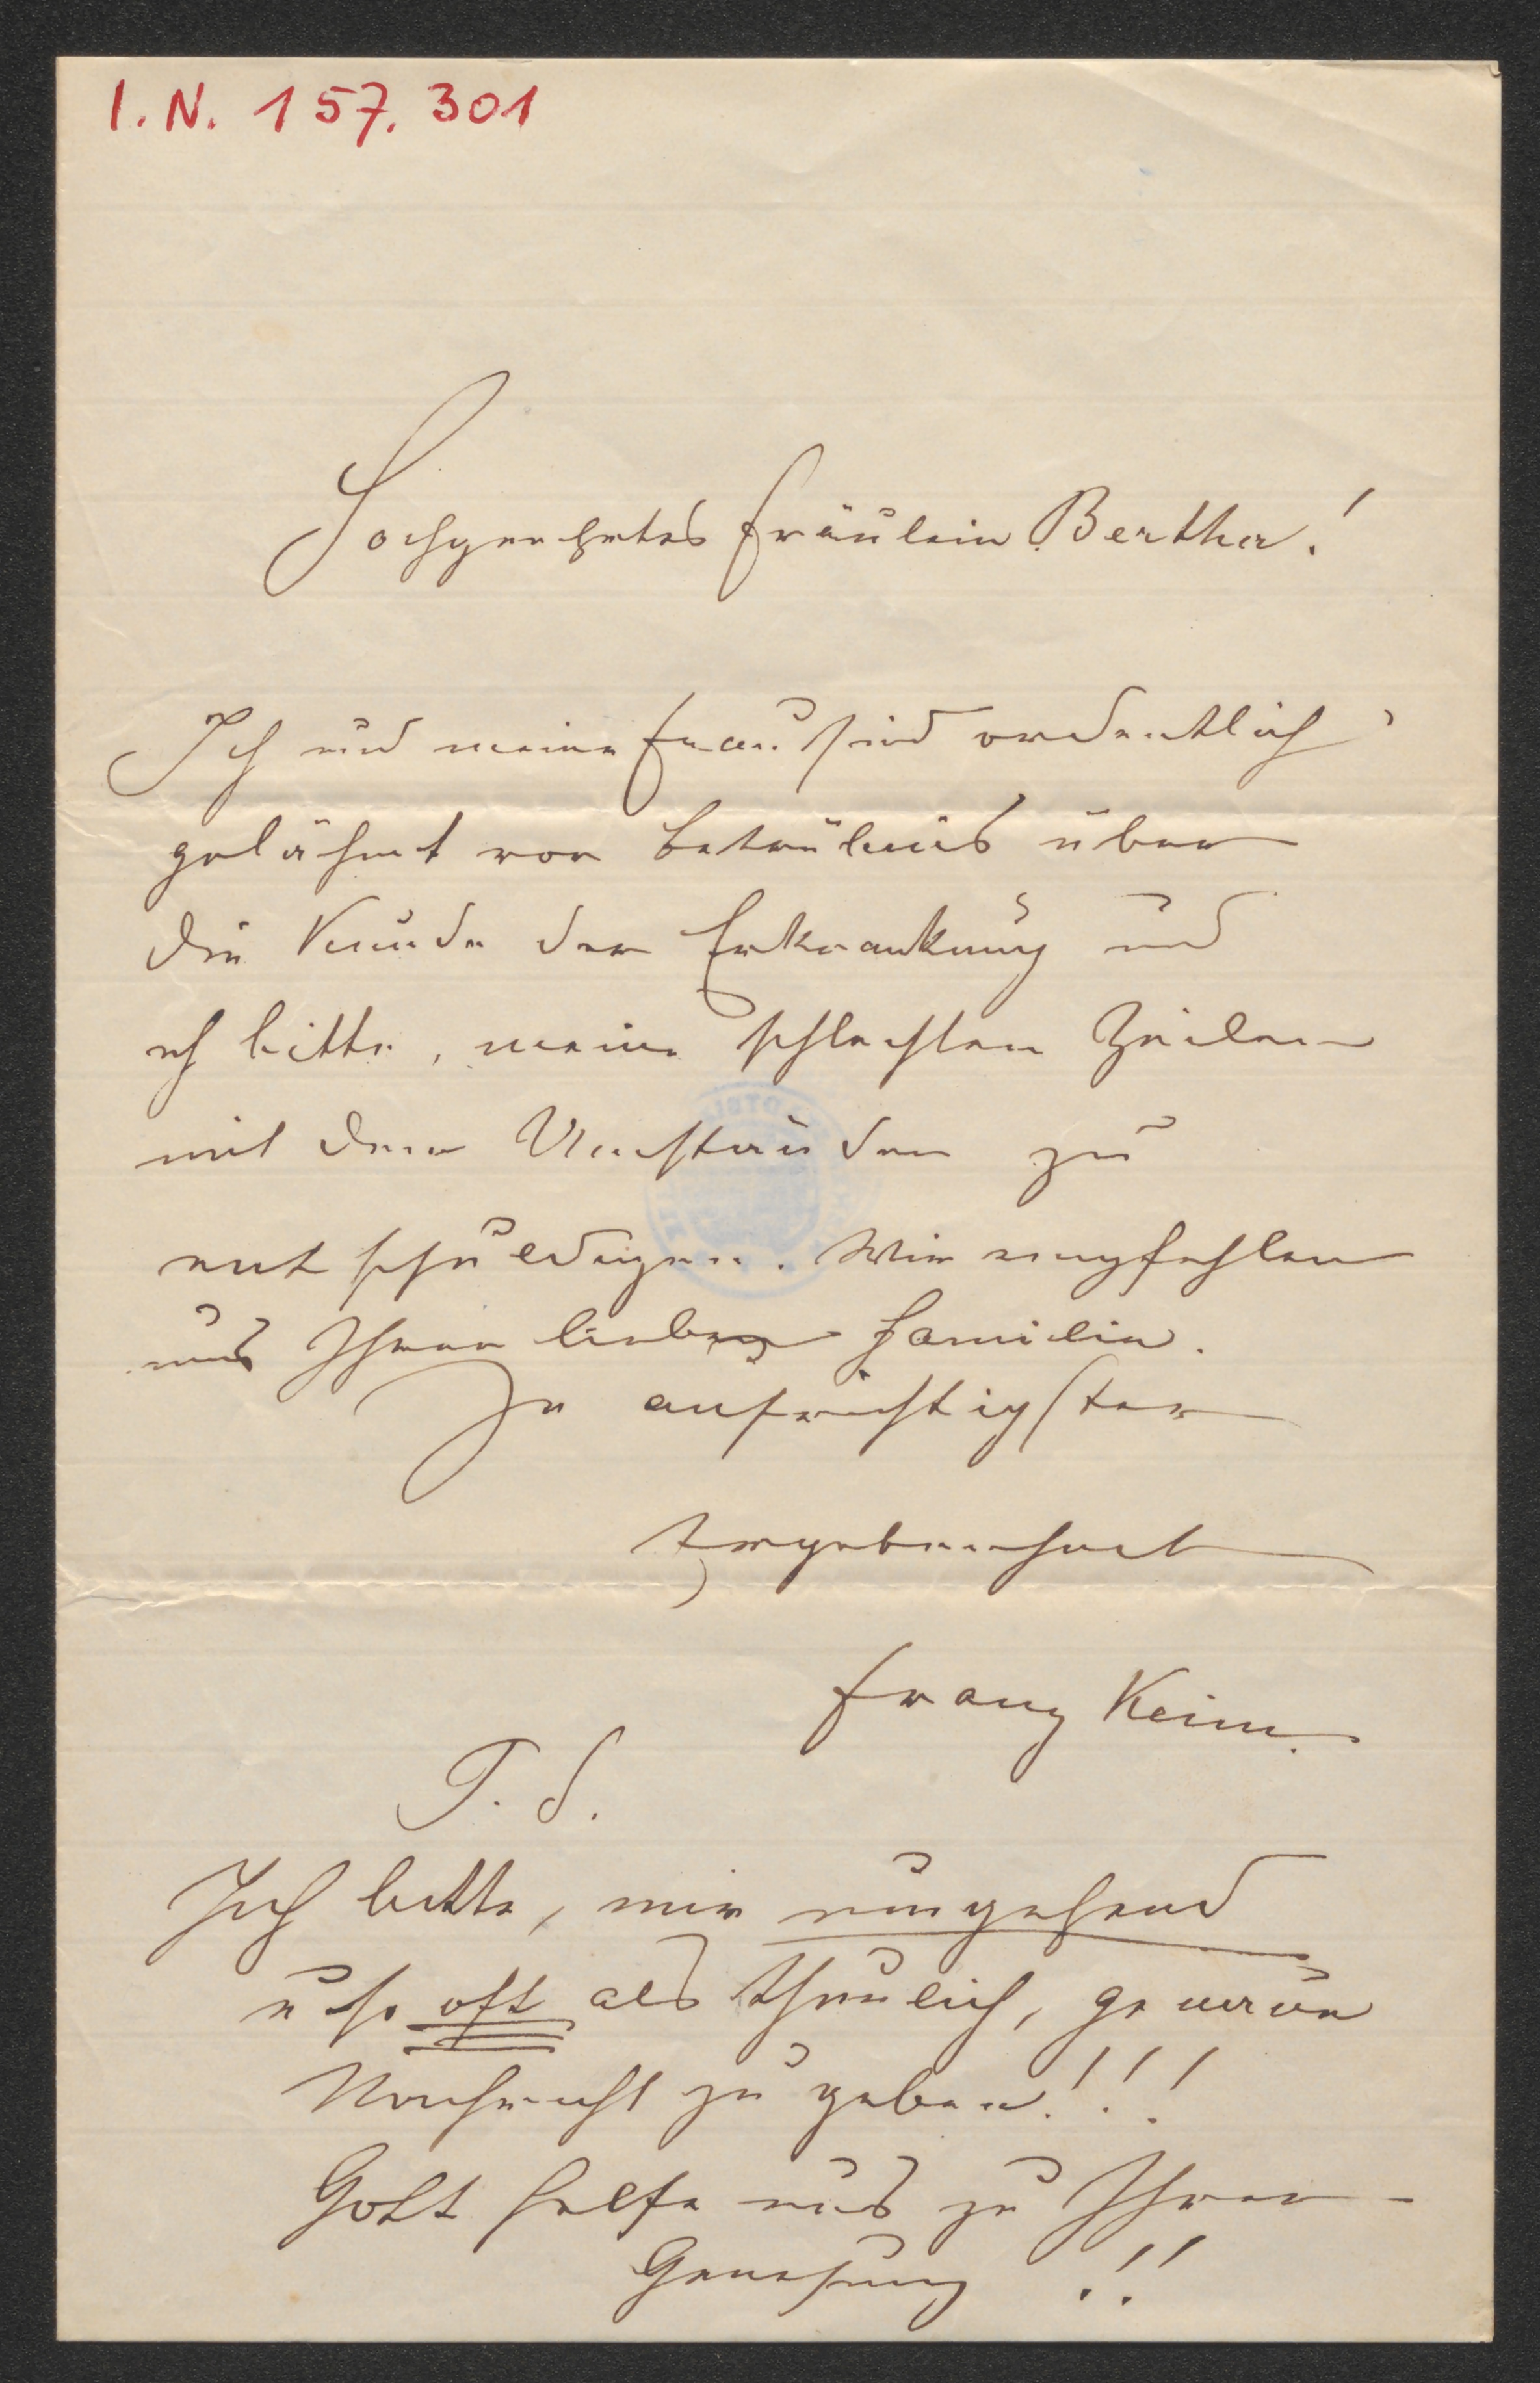 I. N. 157.301
Hochgeehrtes Fräulein Bertha!
Ich und meine Frau sind ordentlich
gelähmt von Betrübnis über
die Kunde der Erkrankung und
ich bitte, meine schlechten Zeilen
mit den Umständen zu
entschuldigen. Wir empfehlen
uns Ihrer lieben Familie.
In aufrichtigster
Ergebenheit
Franz Keim.
P. S.
Ich bitte, mir eingehend
u so oft als thunlich, genaue
Nachricht zu geben!!!
Gott helfe uns zu Ihrer
Genesung!!